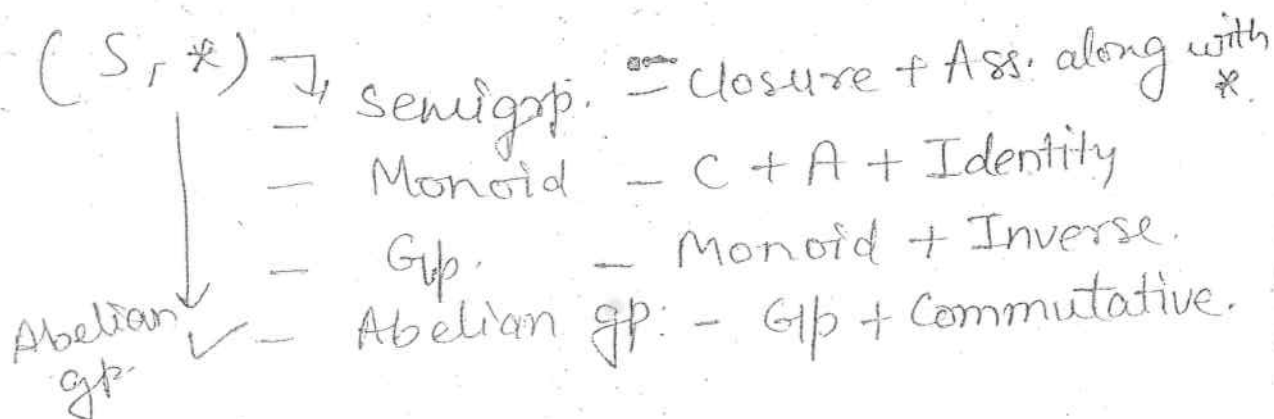 (S, *) → Semigrp. = Closure + Ass. along with *.
- Monoid - C + A + Identity
- Gp. - Monoid + Inverse.
Abelian gp. ✓ - Abelian gp. - Gp + Commutative.